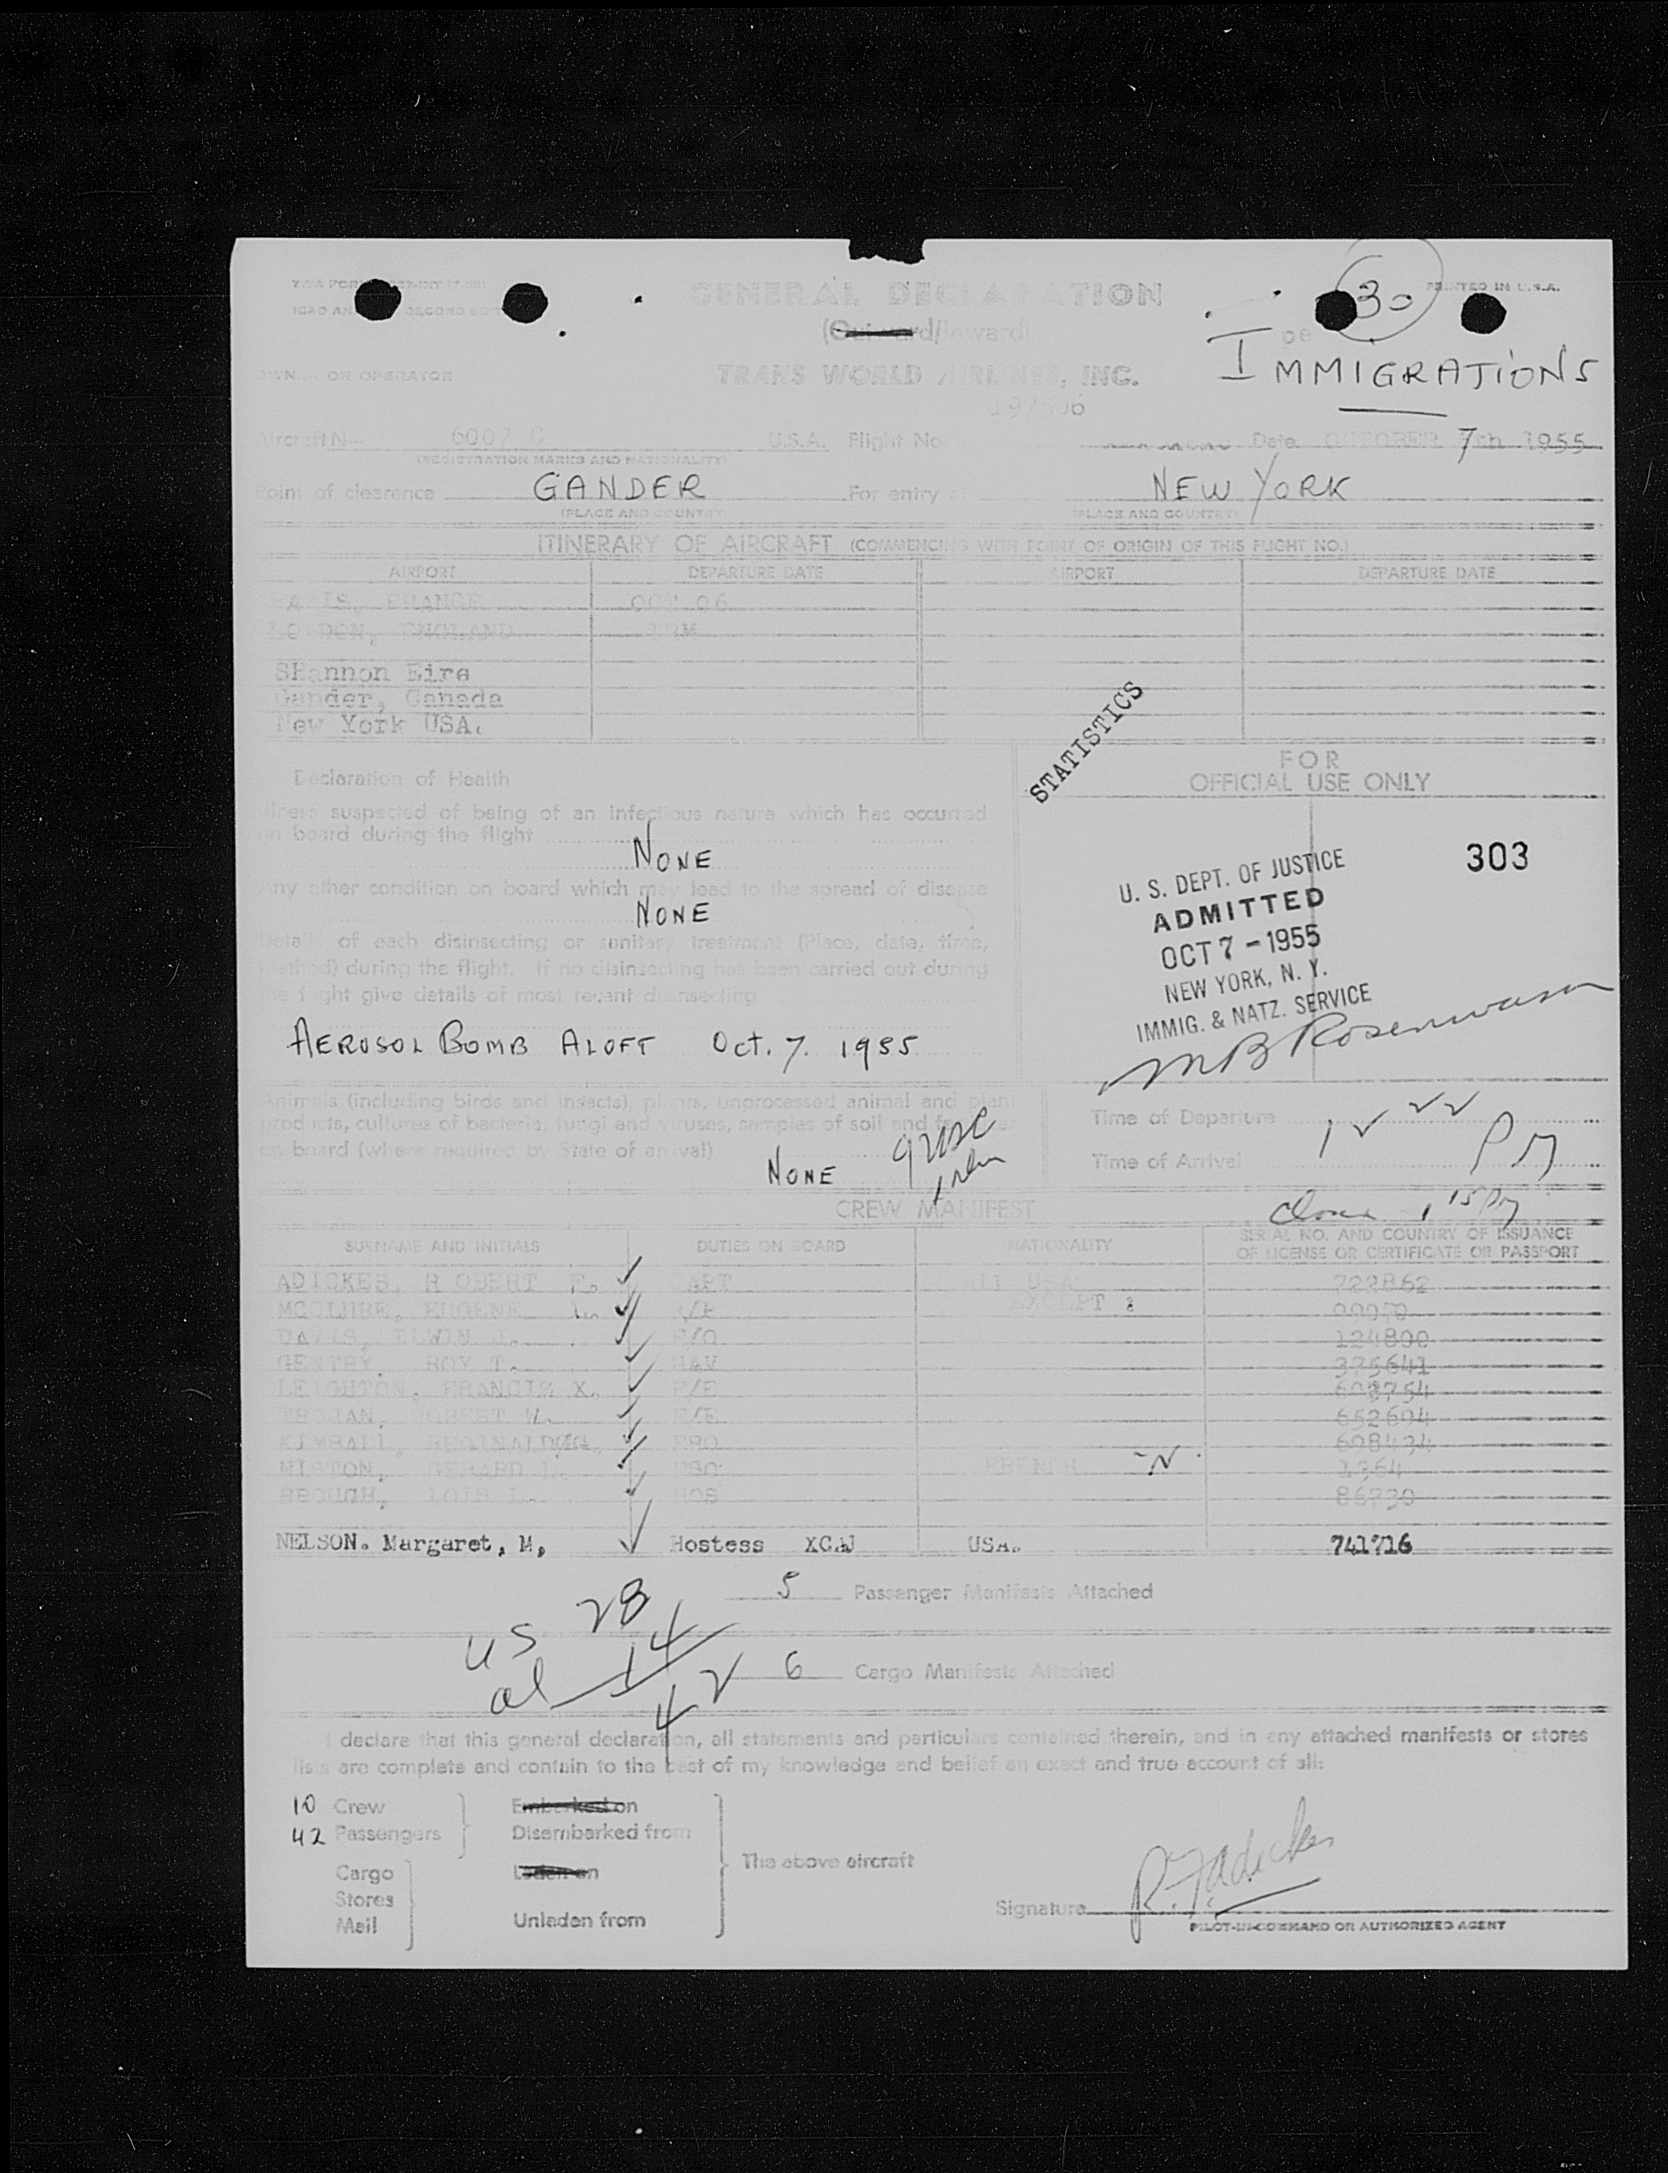 GENERAL DECLARATION
PRINTED IN U.S.A.
30
(Outward/Inward)
IMMIGRATIONS
OWNER OR OPERATOR TRANS WORLD AIRLINES, INC.
Aircraft N- 6007 C U.S.A. Flight No. Date OCTOBER 7th 1955
(REGISTRATION MARKS AND NATIONALITY)
Point of clearance GANDER For entry at NEW YORK
(PLACE AND COUNTRY) (PLACE AND COUNTRY)
ITINERARY OF AIRCRAFT (COMMENCING WITH POINT OF ORIGIN OF THIS FLIGHT NO.)
AIRPORT DEPARTURE DATE AIRPORT DEPARTURE DATE
PARIS, FRANCE OCT 06
LONDON, ENGLAND
SHannon Eire
Gander, Canada
New York USA.
STATISTICS
Declaration of Health
Illness suspected of being of an infectious nature which has occurred
on board during the flight
NONE
Any other condition on board which may lead to the spread of disease
NONE
Details of each disinsecting or sanitary treatment (Place, date, time,
method) during the flight. If no disinsecting has been carried out during
the flight give details of most recent disinsecting
AEROSOL BOMB ALOFT Oct. 7. 1955
Animals (including birds and insects), plants, unprocessed animal and plant
products, cultures of bacteria, fungi and viruses, samples of soil and
on board (where required by State of arrival)
NONE
FOR
OFFICIAL USE ONLY
303
U. S. DEPT. OF JUSTICE
ADMITTED
OCT 7 - 1955
NEW YORK, N. Y.
IMMIG. & NATZ. SERVICE
Time of Departure
Time of Arrival 12 22 PM
CREW MANIFEST
SURNAME AND INITIALS DUTIES ON BOARD NATIONALITY SERIAL NO. AND COUNTRY OF ISSUANCE
OF LICENSE OR CERTIFICATE OR PASSPORT
ADICKES, R OBERT F. CAPT ALL USA
MCCLURE, EUGENE EXCEPT :
DAVIS, ELWIN 124800
GENTRY, ROY T. NAV 375641
LEIGHTON, FRANCIS X. F/E
TROJAN, ROBERT W. F/E 652604
KIMBALL, REGINALD 608434
GERARD FRENCH 1364
BROUGH, LOIS L. HOS 86730
NELSON. Margaret, M, Hostess USA. 741716
5 Passenger Manifests Attached
US 28
al 14
42
6 Cargo Manifests Attached
I declare that this general declaration, all statements and particulars contained therein, and in any attached manifests or stores
lists are complete and contain to the best of my knowledge and belief an exact and true account of all:
10 Crew
42 Passengers
Cargo
Stores
Mail
Embarked on
Disembarked from
Laden on
Unladen from
The above aircraft
Signature R. F. Adickes
PILOT-IN-COMMAND OR AUTHORIZED AGENT